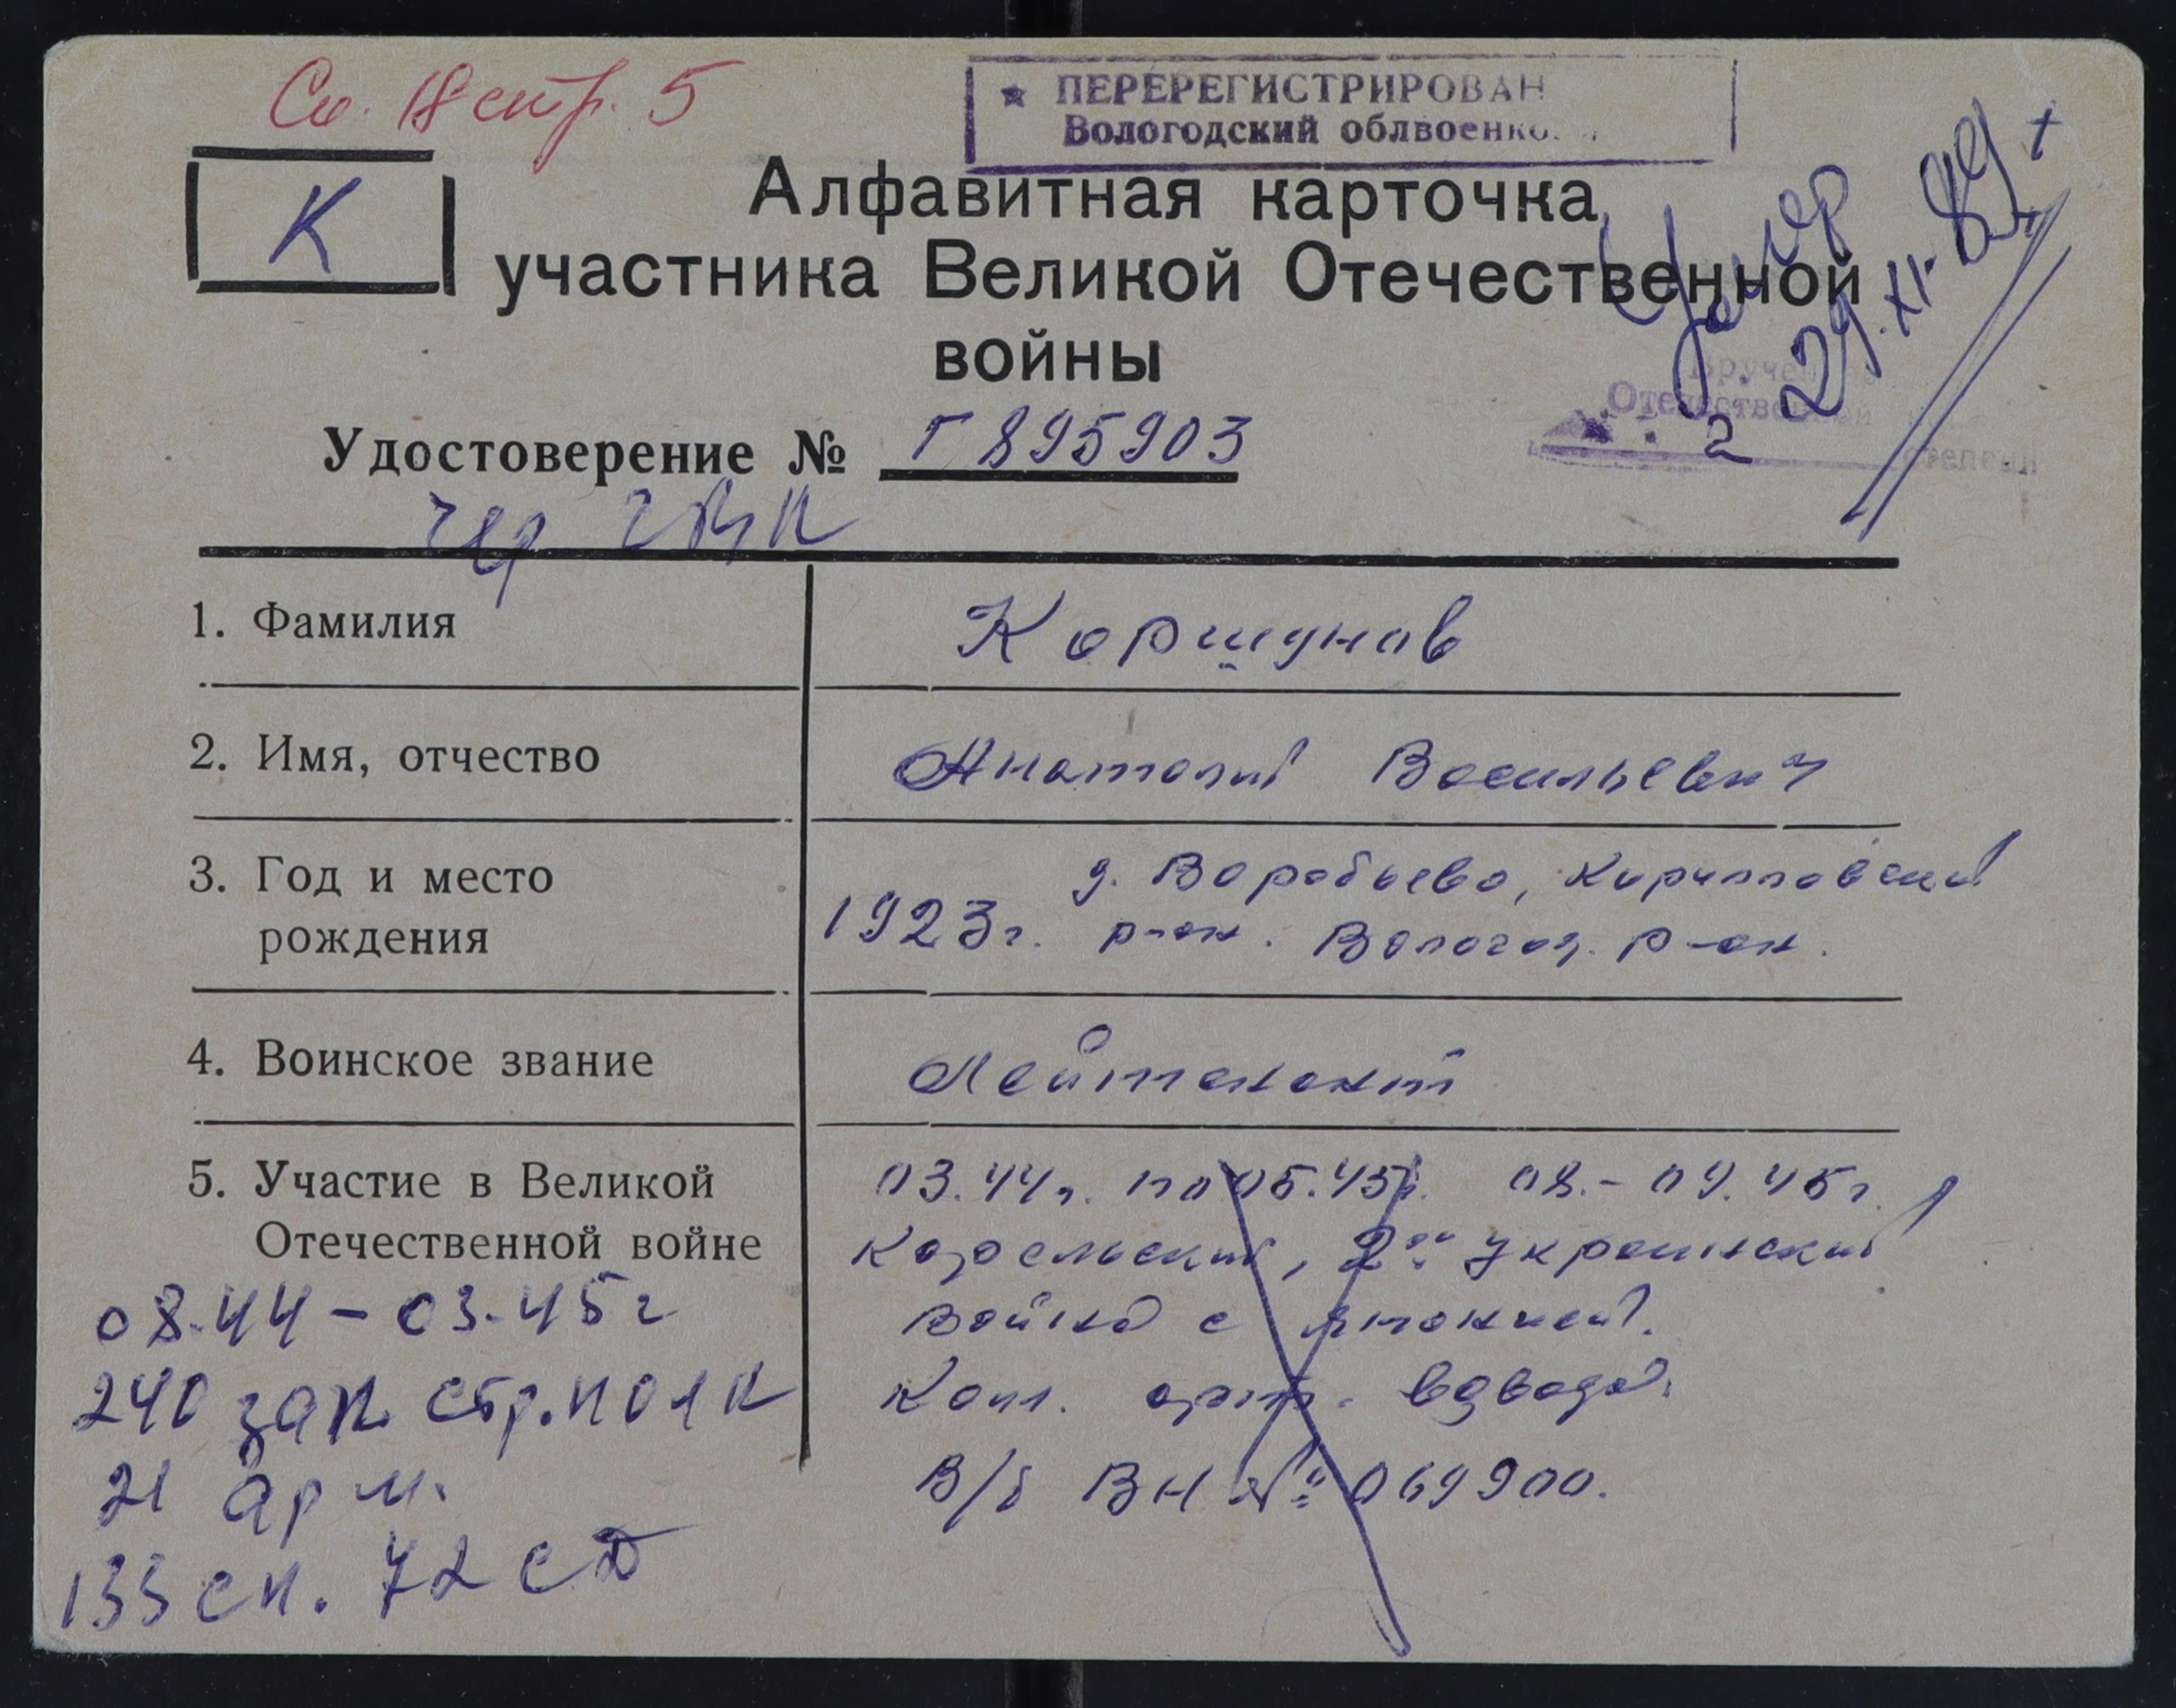 Сп. 18 стр. 5
ПЕРЕРЕГИСТРИРОВАН
Вологодский облвоенко
К
Алфавитная карточка
участника Великой Отечественной
войны
Умер
29.XI.89 +
Отечественной
2
степени
Удостоверение № Г 895903
Чер ГВК
1. Фамилия
Коршунов
2. Имя, отчество
Анатолий Васильевич
3. Год и место
рождения
д. Воробьево, Кирилловский
1923г. р-он. Вологод. р-он.
4. Воинское звание
Лейтенант
5. Участие в Великой
Отечественной войне
03.44г. по 05.45г. 08.-09.45г.
Карельский, 2ой Украинский
Война с Японией.
Ком. арт. взвода.
В/б ВН № 069900.
08.44-03.45г
240 зап. стр. полк
21 арм.
133 сп. 72 сд